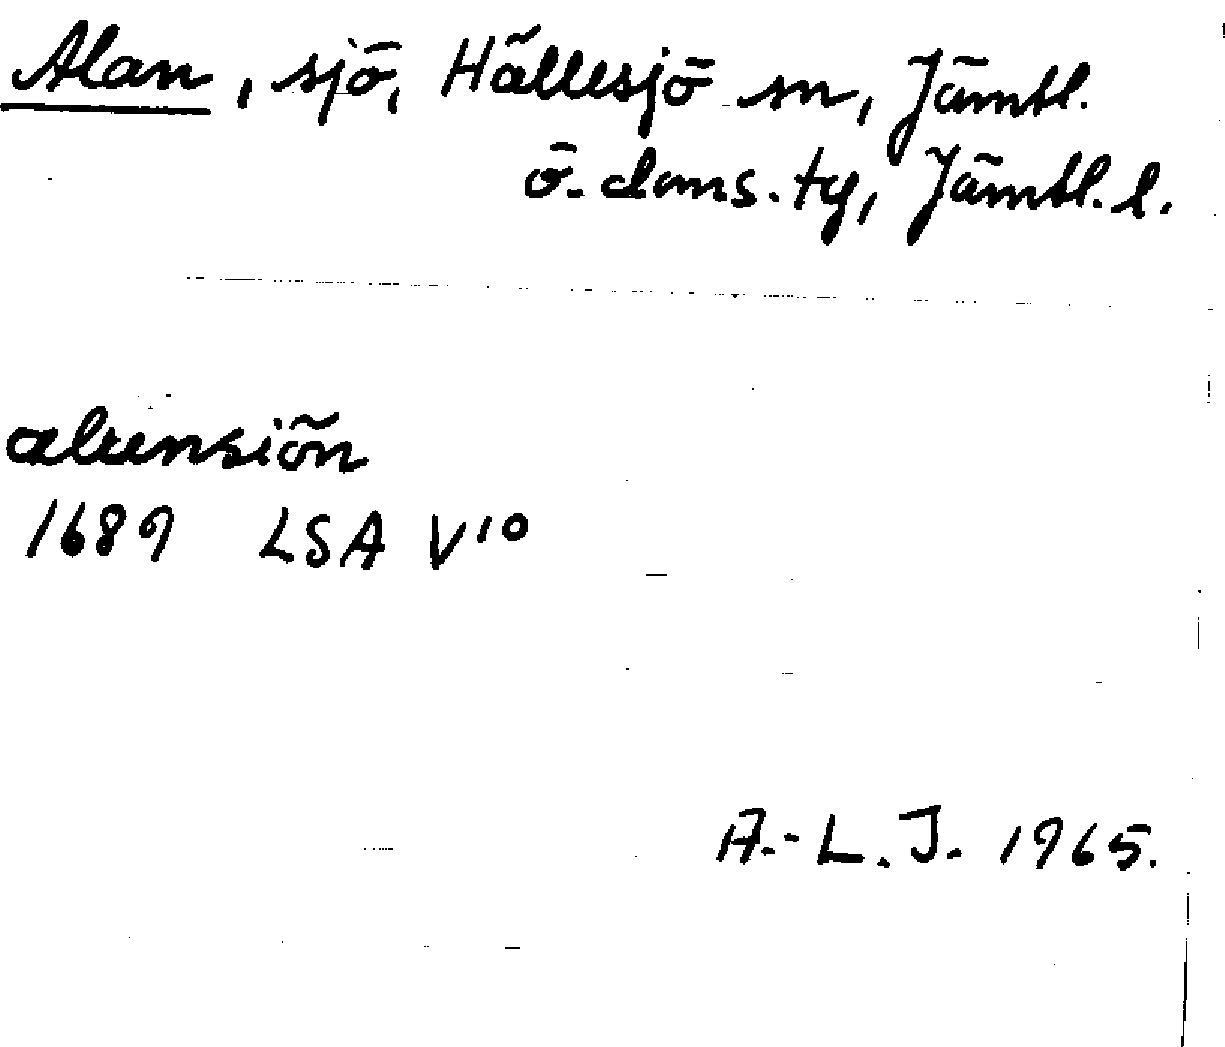 Alan, sjö, Hällesjö sn, Jämtl.
ö. doms. tg, Jämtl. l.
alunsiön
1689 LSA V¹⁰
A.-L. J. 1965.